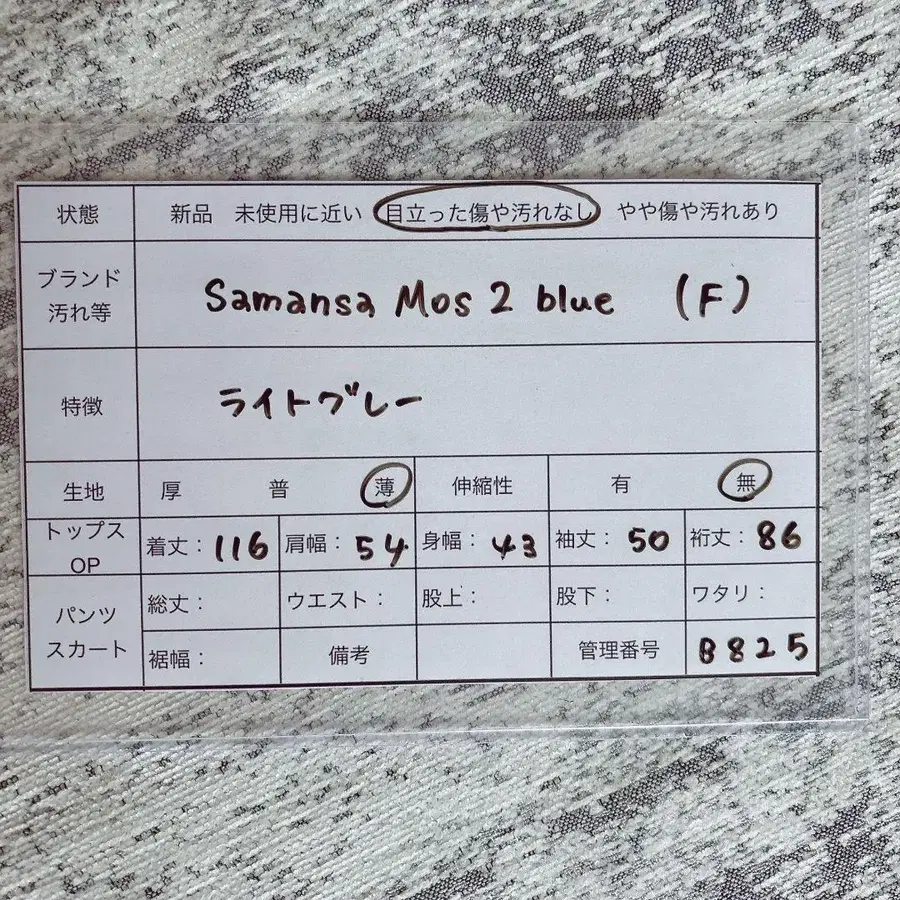 状態 新品 未使用に近い 目立った傷や汚れなし やや傷や汚れあり
ブランド
汚れ等
Samansa Mos 2 blue (F)
特徴 ライトグレー
生地 厚 普 薄 伸縮性 有 無
トップス
OP
着丈：116 肩幅：54 身幅：43 袖丈：50 裄丈：86
パンツ
スカート
総丈： ウエスト： 股上： 股下： ワタリ：
裾幅： 備考 管理番号 B825